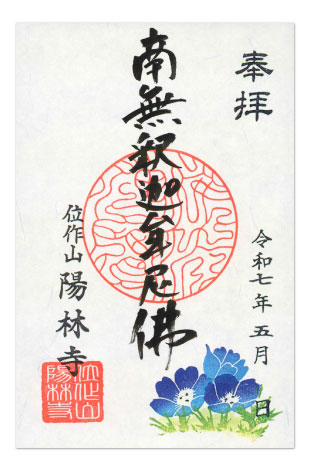 奉拝
令和七年五月 日
南無釈迦牟尼佛
位作山 陽林寺
位作山
陽林寺